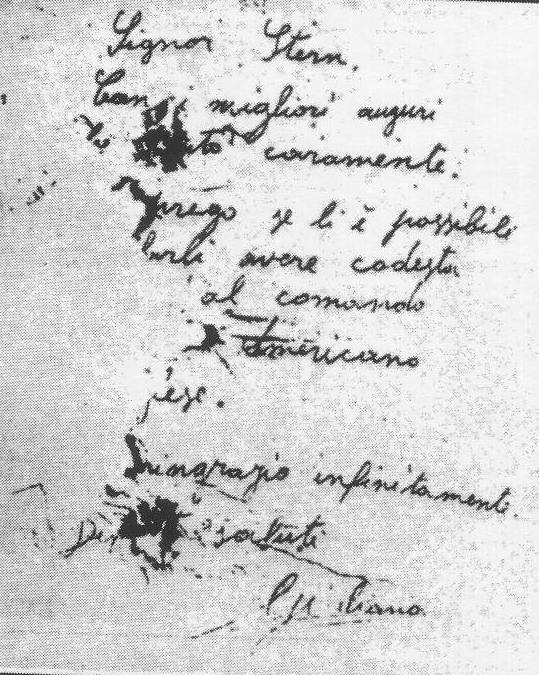 Signor Stern.
Con i migliori auguri
caramente.
prego se li è possibile
farli avere codesta
al comando
Americano
ringrazio infinitamente.
saluti